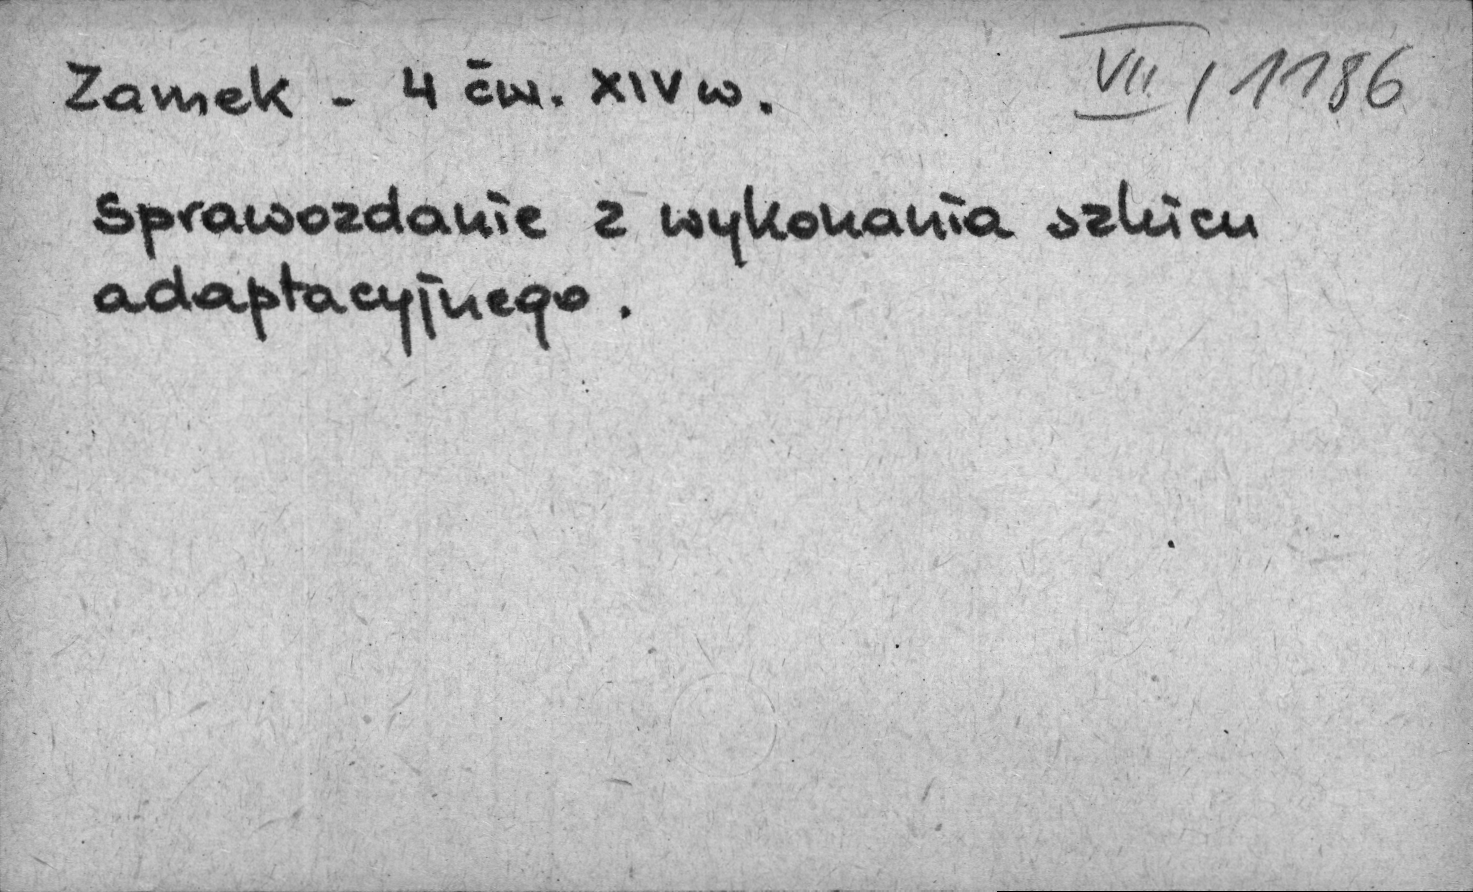 Zamek - 4 ćw. XIV w.
VII / 1186
Sprawozdanie z wykonania szkicu
adaptacyjnego.